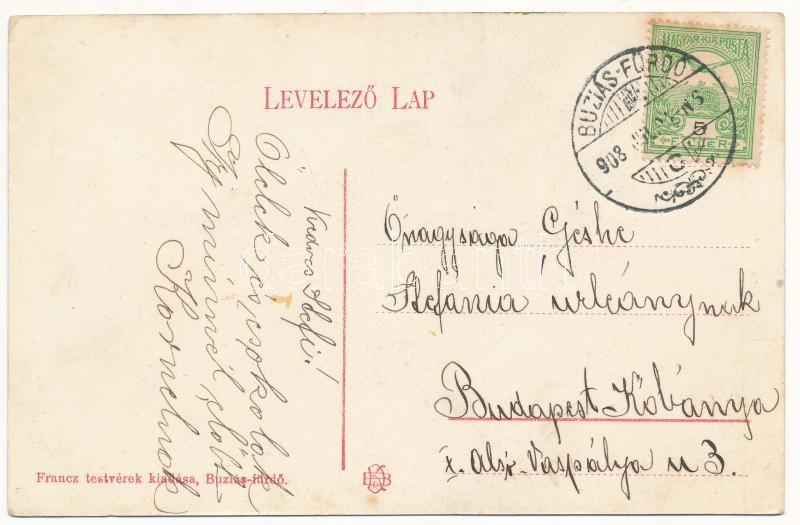 LEVELEZŐ LAP
MAGYAR KIR. POSTA
5
FILLÉR
BUZIÁS-FÜRDŐ
908
Kedves Stefi!
Ölelek és csokolak
Irj minnél előbb
Kornelnak
Őnagysága Géshe
Stefánia úrleánynak
Budapest Kőbánya
X. alsó Vaspálya u 3.
Francz testvérek kiadása, Buziás-fürdő.
darabanth